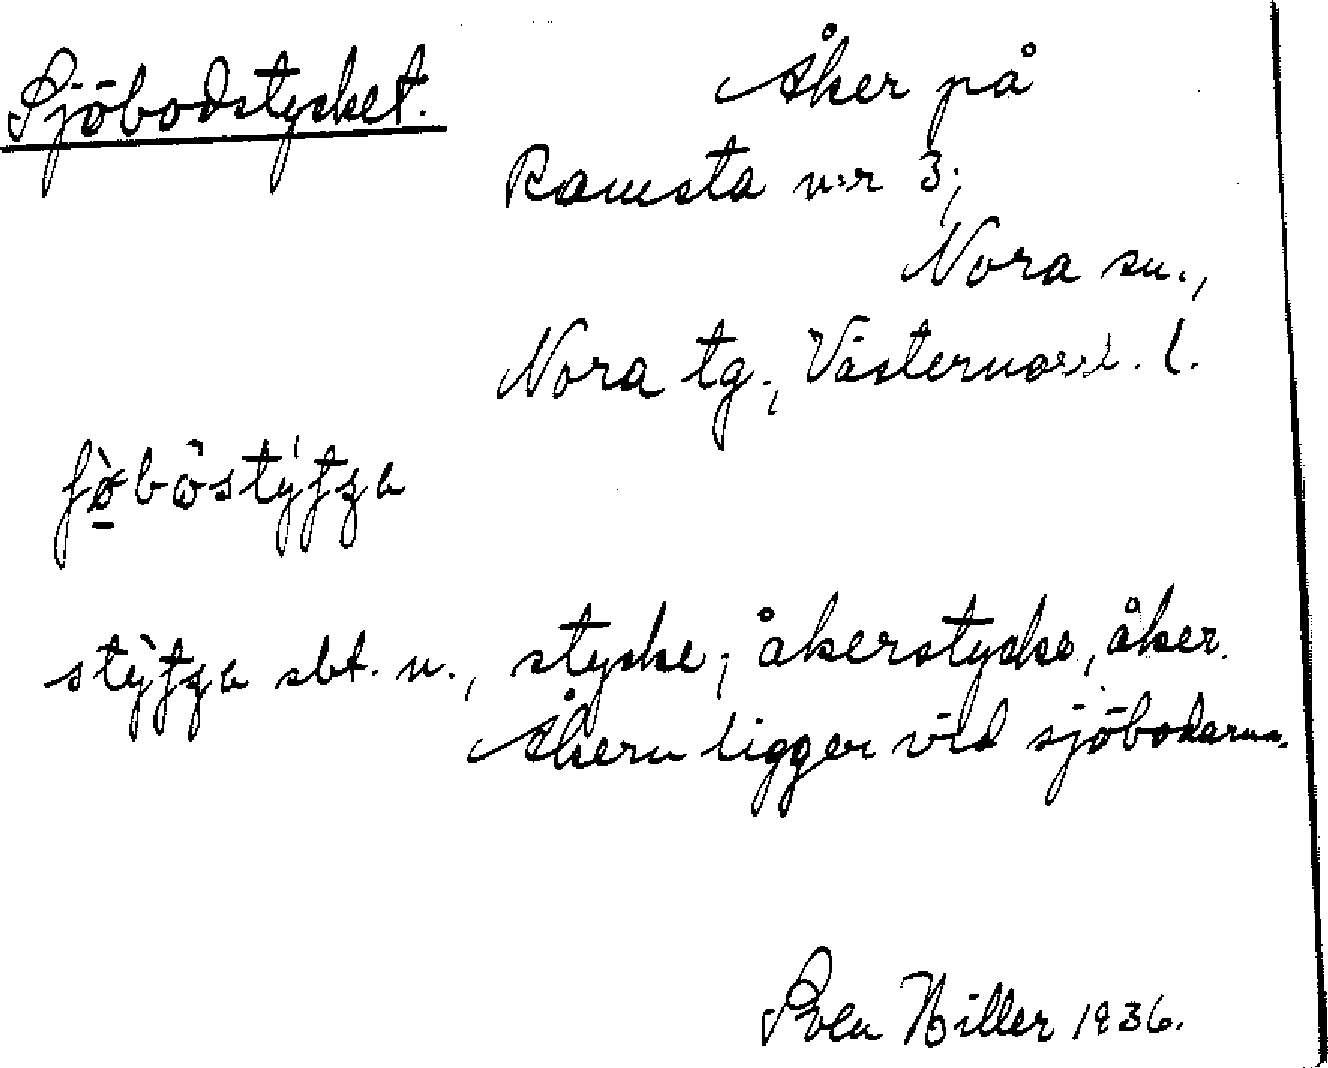 Sjöbodstycket.
Åker på
Ramsta n:r 3,
Nora sn.,
Nora tg., Västernorrl. l.
stycke; åkerstycke, åker.
Åkern ligger vid sjöbodarna.
Sven Hiller 1936.